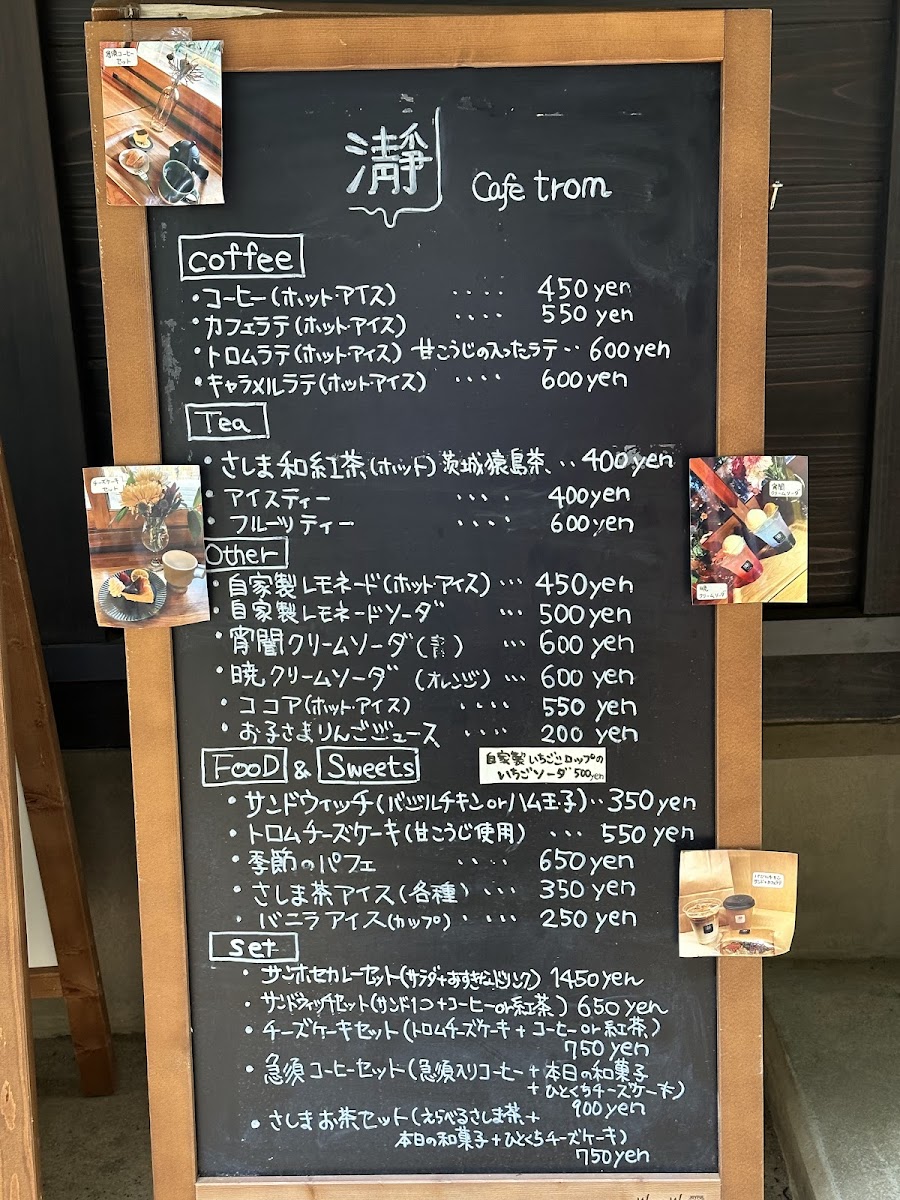 急須コーヒー
セット
瀞 Cafe trom
coffee
・コーヒー(ホット・アイス) ‥‥ 450 yen
・カフェラテ(ホット・アイス) ‥‥ 550 yen
・トロムラテ(ホット・アイス) 甘こうじの入ったラテ‥ 600 yen
・キャラメルラテ(ホット・アイス) ‥‥ 600 yen
Tea
・さしま和紅茶(ホット)茨城猿島茶 ‥ 400 yen
・アイスティー ‥‥ 400 yen
・フルーツティー ‥‥ 600 yen
チーズケーキ
セット
宵闇
クリームソーダ
暁
クリームソーダ
Other
・自家製レモネード(ホット・アイス) … 450 yen
・自家製レモネードソーダ … 500 yen
・宵闇クリームソーダ( ) … 600 yen
・暁クリームソーダ (オレンジ) … 600 yen
・ココア(ホット・アイス) ‥‥ 550 yen
・お子さまりんごジュース ‥‥ 200 yen
FooD & Sweets
自家製いちごシロップの
いちごソーダ 500yen
・サンドウィッチ(バジルチキンorハム玉子)‥350 yen
・トロムチーズケーキ(甘こうじ使用) … 550 yen
・季節のパフェ ‥‥ 650 yen
・さしま茶アイス(各種) … 350 yen
・バニラアイス(カップ)・‥‥ 250 yen
set
・サンホセカレーセット(サラダ+お好きなドリンク) 1450 yen
・サンドウィッチセット(サンド1つ+コーヒーor紅茶) 650 yen
・チーズケーキセット(トロムチーズケーキ+コーヒーor紅茶)
750 yen
・急須コーヒーセット(急須入りコーヒー+本日の和菓子
+ひとくちチーズケーキ)
900 yen
・さしまお茶セット(えらべるさしま茶+
本日の和菓子+ひとくちチーズケーキ)
750 yen